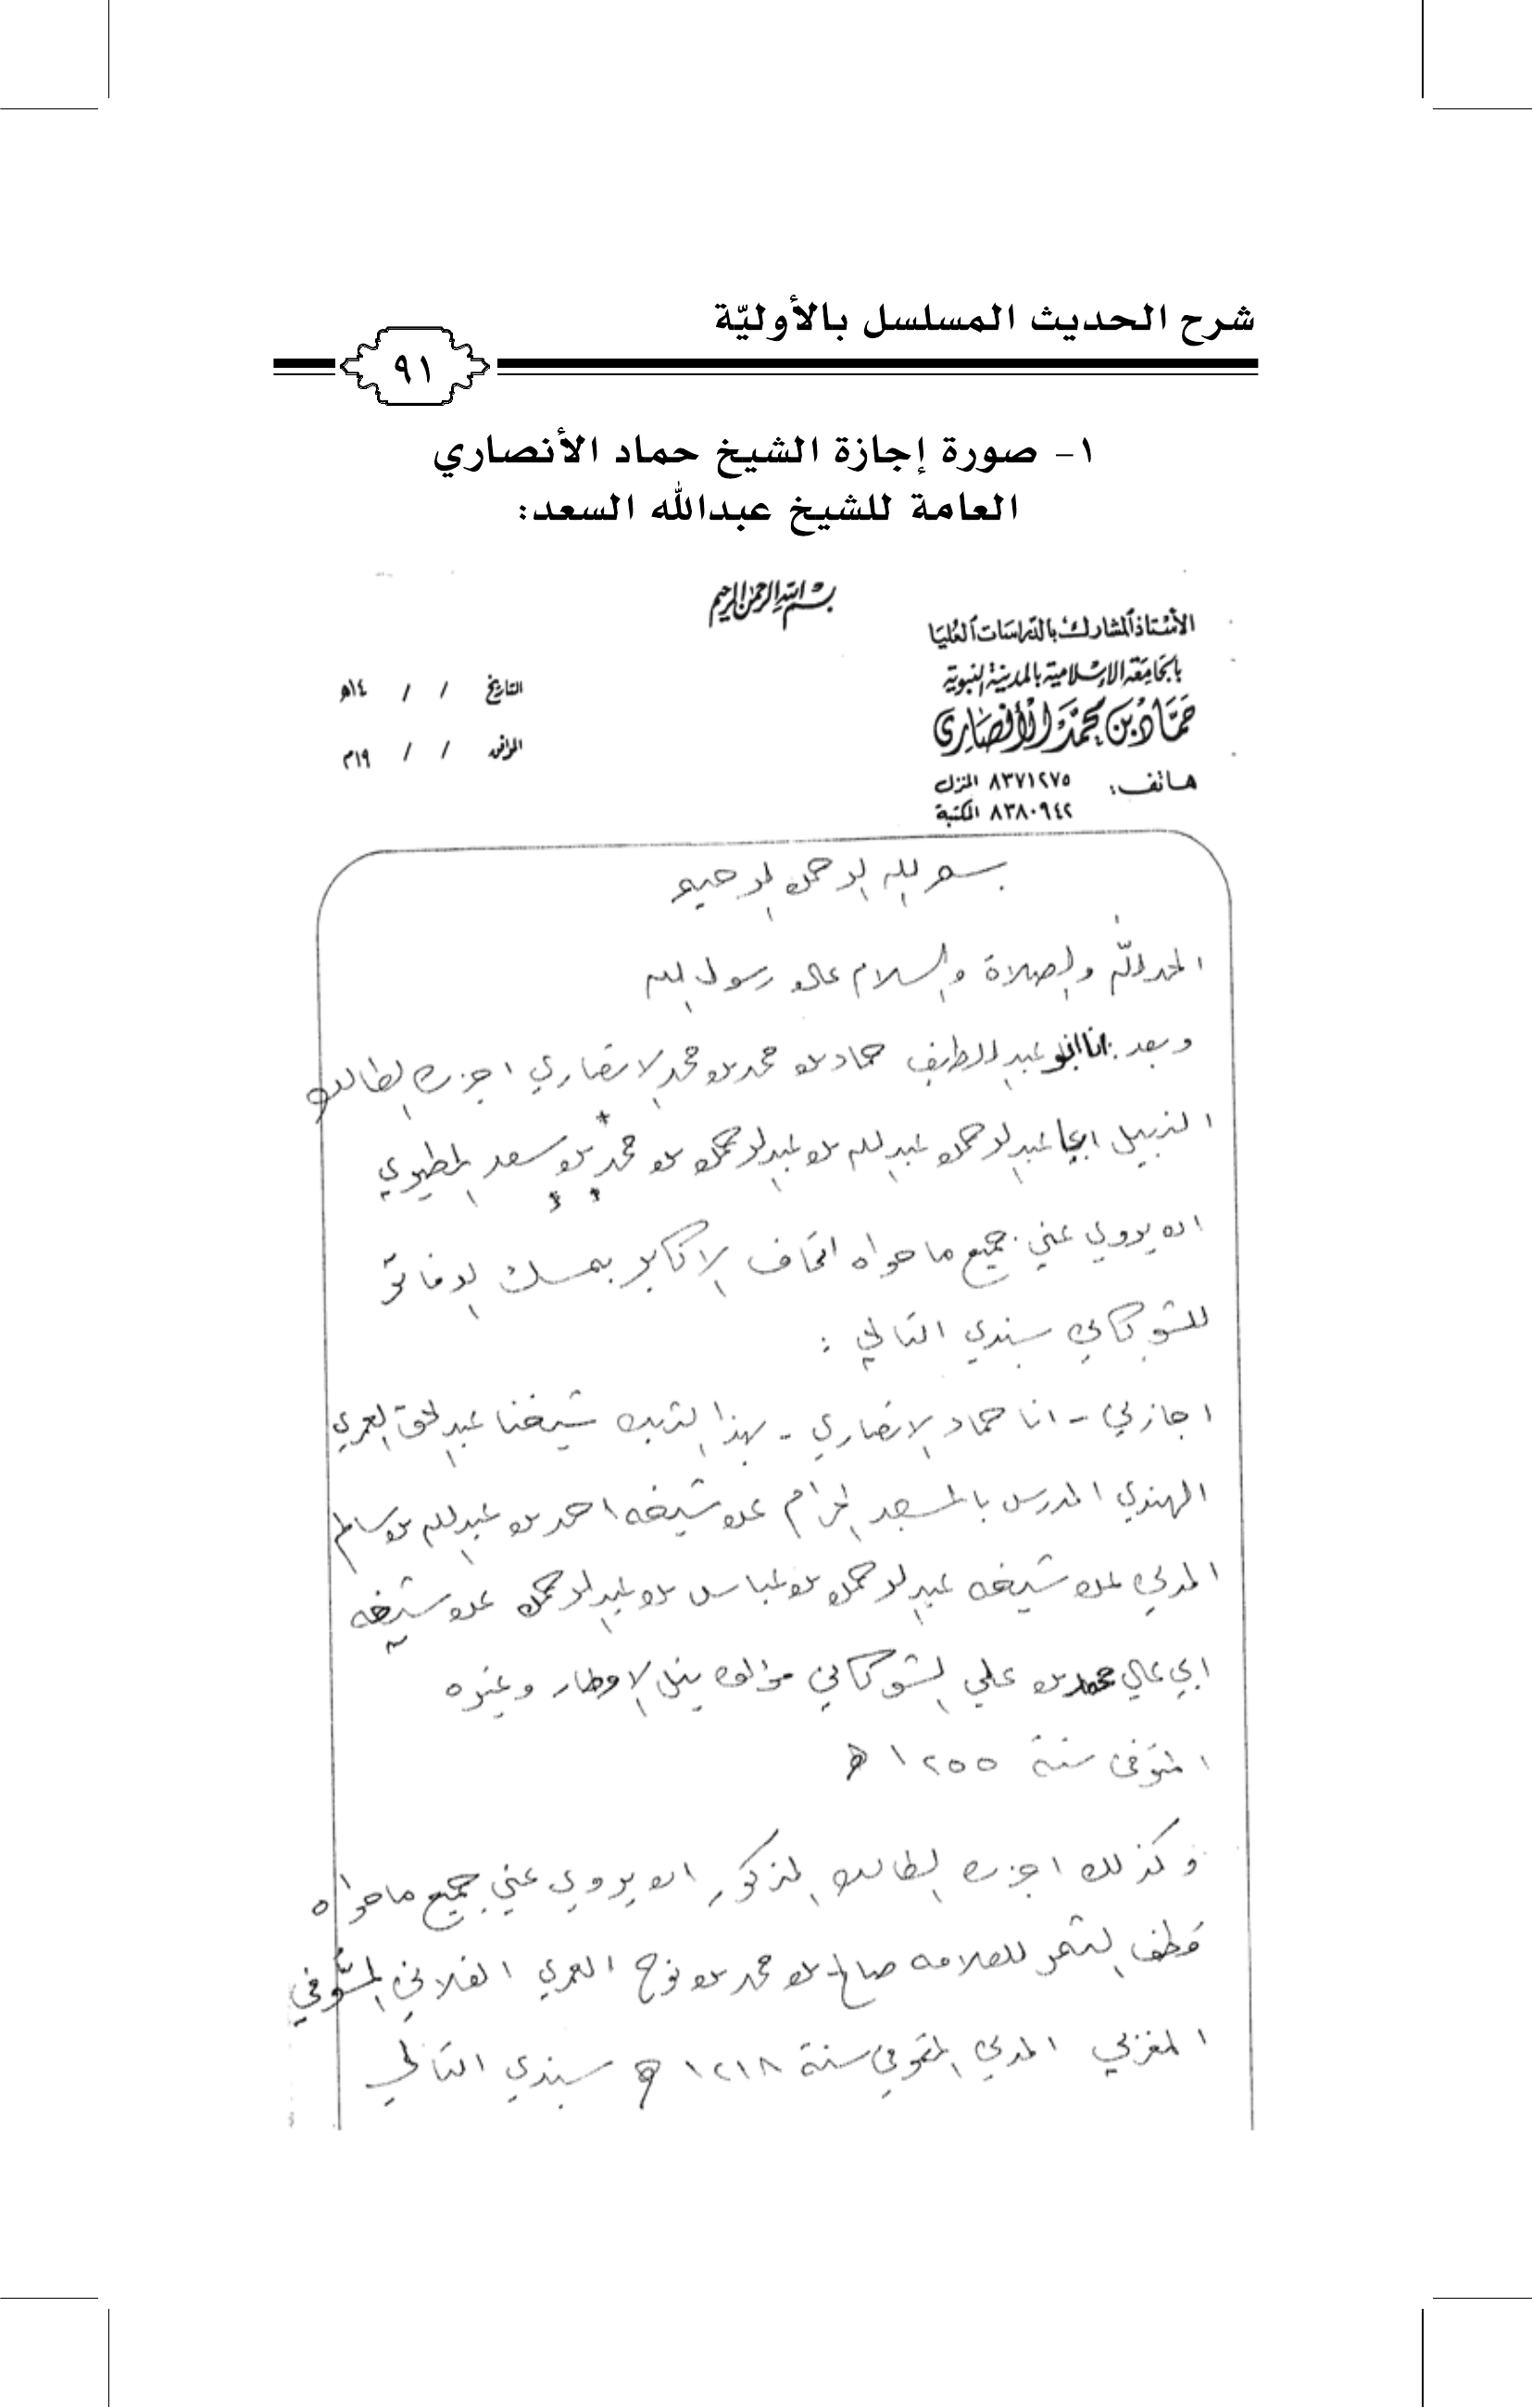 شرح الحديث المسلسل بالأوليّة
٩١
١- صورة إجازة الشيخ حماد الأنصاري
العامة للشيخ عبدالله السعد:
بسم الله الرحمن الرحيم
الأستاذ المشارك بالدراسات العليا
بالجامعة الإسلامية بالمدينة النبوية
حمّاد بن محمّد الأنصاري
هاتف: ٨٣٧١٢٧٥ المنزل
٨٣٨٠٩٤٢ المكتبة
التاريخ / / ١٤هـ
الموافق / / ١٩م
بسم الله الرحمن الرحيم
الحمد لله والصلاة والسلام على رسول الله
وبعد: انا ابو عبد اللطيف حماد بن محمد بن محمد الانصاري اجزت الطالب
النبيل ابا عبد الرحمن عبد الله بن عبد الرحمن بن محمد بن سعد المطيري
ان يروي عني جميع ما حواه اتحاف الاكابر بمسك الدفاتر
للشوكاني سندي التالي :
اجازني - انا حماد الانصاري - بهذا الثبت شيخنا عبد الحق العمري
الهندي المدرس بالمسجد الحرام عن شيخه احمد بن عبد الله بن سالم
المدني عن شيخه عبد الرحمن بن عباس بن عبد الرحمن عن شيخه
ابي علي محمد بن علي الشوكاني مؤلف نيل الاوطار وغيره
المتوفى سنة ١٢٥٥ هـ
وكذلك اجزت الطالب المذكور ان يروي عني جميع ما حواه
قطف الثمر للعلامه صالح بن محمد بن نوح العمري الفلاني المسوفي
المغربي المدني المتوفي سنة ١٢١٨ هـ سندي التالي